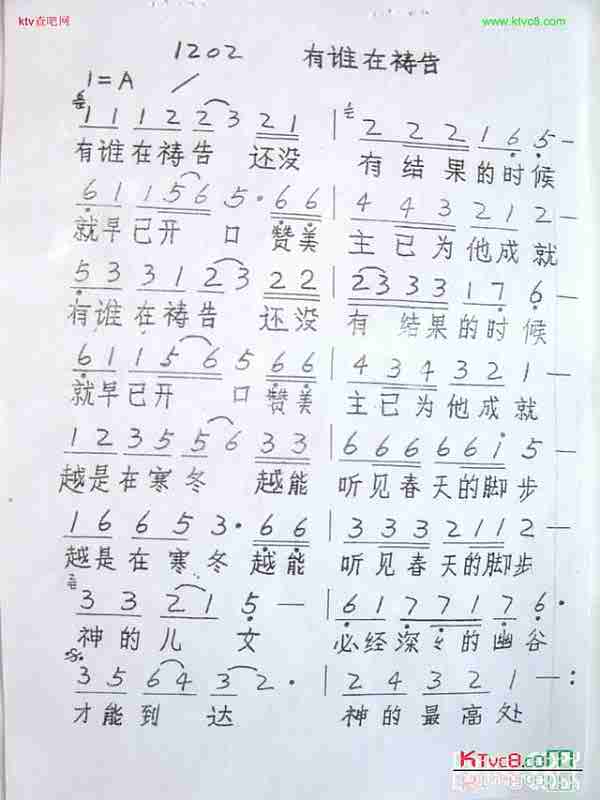 ktv查吧网
www.ktvc8.com
1202 有谁在祷告
1=A
1 1 1 2 2 3 2 1 | 2 2 2 2 1 6 5 —
有谁在祷告 还没 有结果的时候
6 1 1 5 6 5 · 6 6 | 4 4 3 2 1 2 —
就早已开口赞美 主已为他成就
5 3 3 1 2 3 2 2 | 2 3 3 3 3 1 7 6 —
有谁在祷告 还没 有结果的时候
6 1 1 5 6 5 6 6 | 4 3 4 3 2 1 —
就早已开 口赞美 主已为他成就
1 2 3 5 5 6 3 3 | 6 6 6 6 6 i 5 —
越是在寒冬 越能 听见春天的脚步
1 6 6 5 3 · 6 6 | 3 3 3 3 2 1 1 2 —
越是在寒冬越能 听见春天的脚步
3 3 2 1 5 — | 6 1 7 7 1 7 6 ·
神的儿 女 必经深 的幽谷
3 5 6 4 3 2 · | 2 4 3 2 1 — :
才能到 达 神的最高处
KTvc8.com